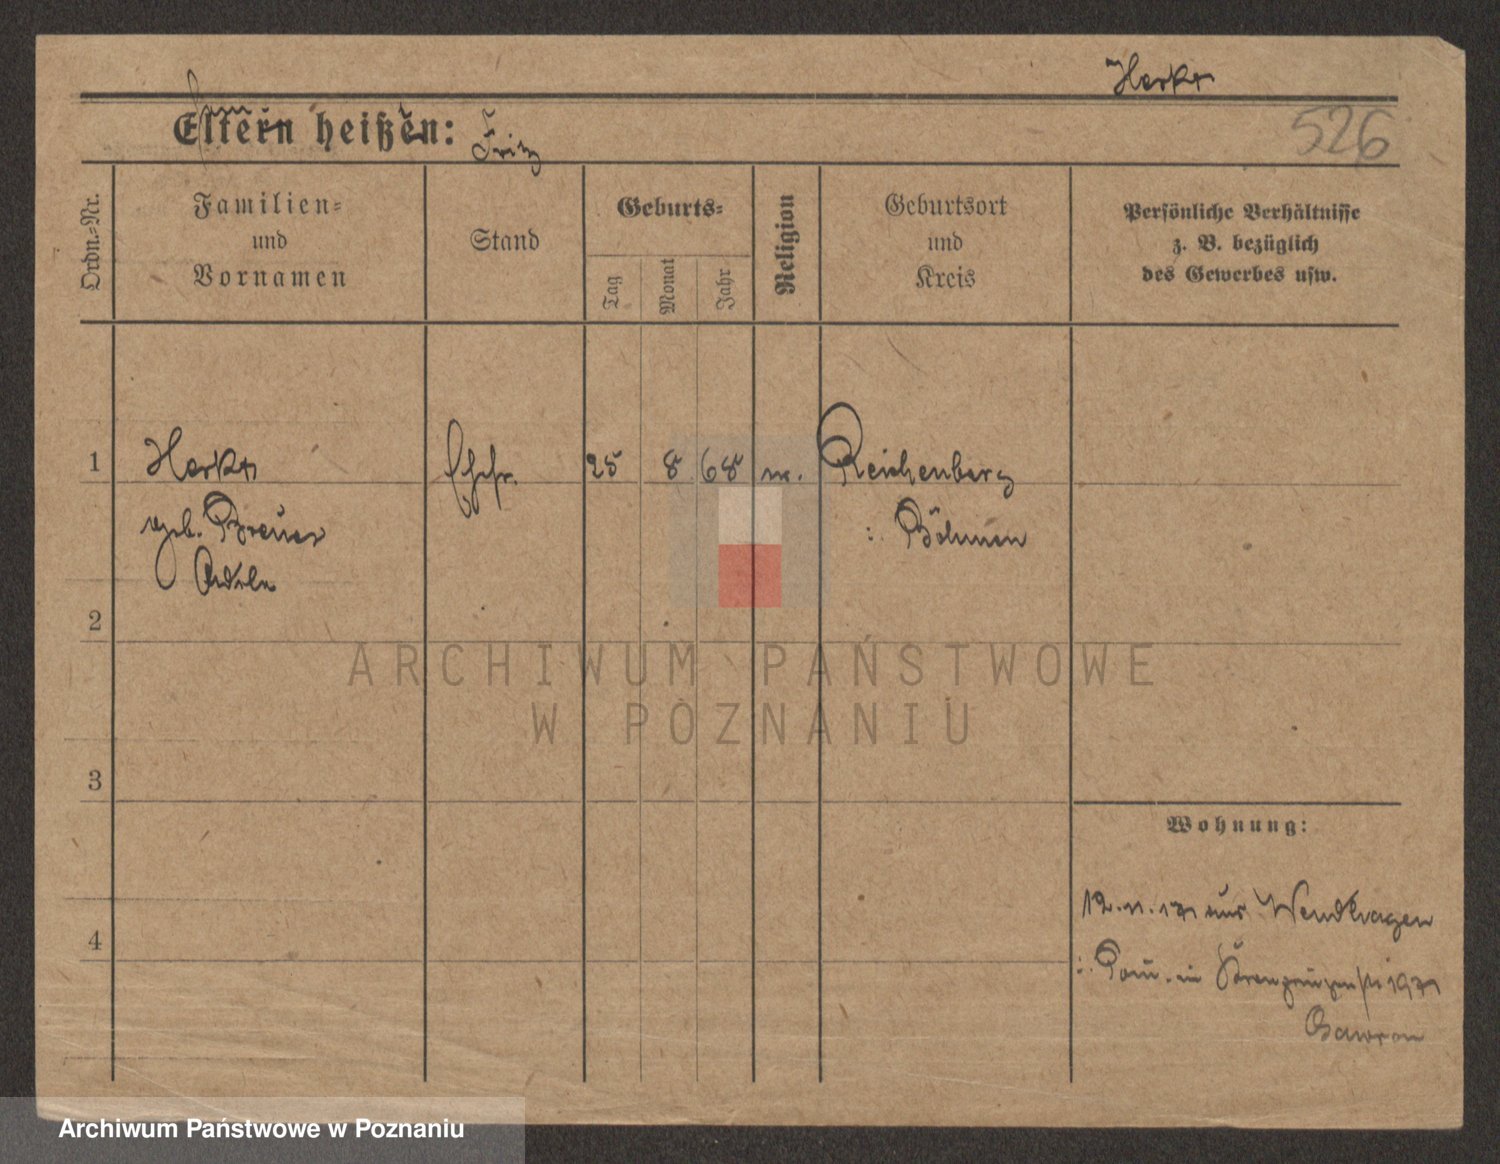 Herkt
Eltern heißen: Fritz
526
Ordn.-Nr.
Familien-
und
Vornamen
Stand
Geburts-
Tag
Monat
Jahr
Religion
Geburtsort
und
Kreis
Persönliche Verhältnisse
z. B. bezüglich
des Gewerbes usw.
1
Herkt
geb. Breuer
Adele
Ehefr.
25
8
68
Reichenberg
i. Böhmen
2
3
4
Wohnung:
aus Wendhagen
i. Pom. in
Gawron
ARCHIWUM PAŃSTWOWE
W POZNANIU
Archiwum Państwowe w Poznaniu